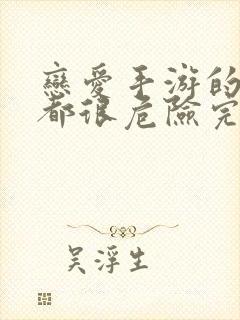 戀愛手游的
都很危險完
吴浮生